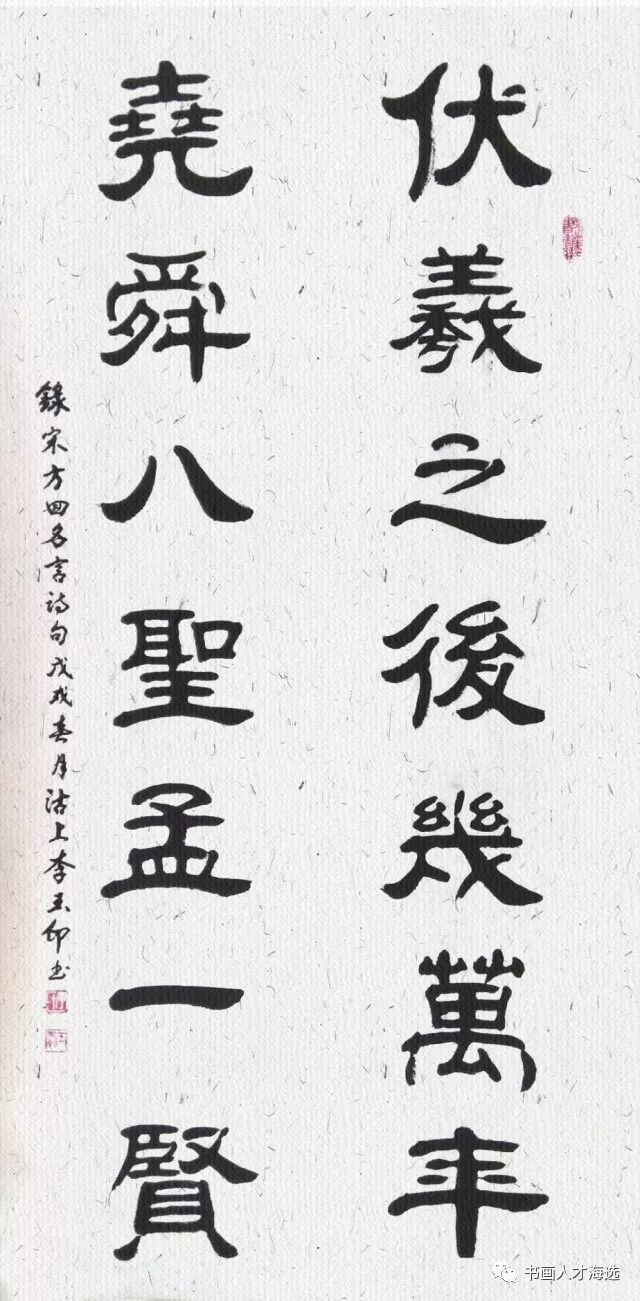 伏羲之後幾萬年
堯舜八聖孟一賢
錄宋方回名言詩句戊戌春月沽上李玉印书
书画人才海选